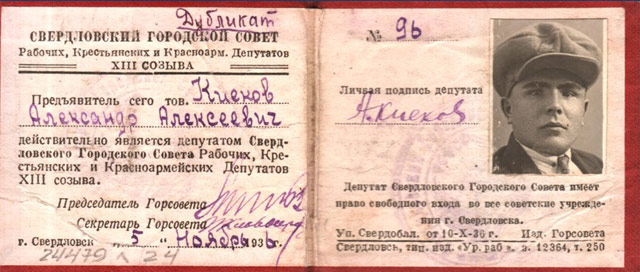 Дубликат
СВЕРДЛОВСКИЙ ГОРОДСКОЙ СОВЕТ
Рабочих, Крестьянских и Красноарм. Депутатов
XIII СОЗЫВА
Предъявитель сего тов. Киеков
Александр Алексеевич
действительно является депутатом Сверд-
ловского Городского Совета Рабочих, Кре-
стьянских и Красноармейских Депутатов
XIII созыва.
Председатель Горсовета
Секретарь Горсовета
г. Свердловск „ 5 " ноябрь 1936 г.
24479 24
№ 96
Личная подпись депутата
А. Киеков
Депутат Свердловского Городского Совета имеет
право свободного входа во все советские учрежде-
ния г. Свердловска.
Уп. Свердобал. от 10-X-36 г. Изд. Горсовета
Свердловсь, тип. изд. „Ур. раб" з. 12364, т. 250